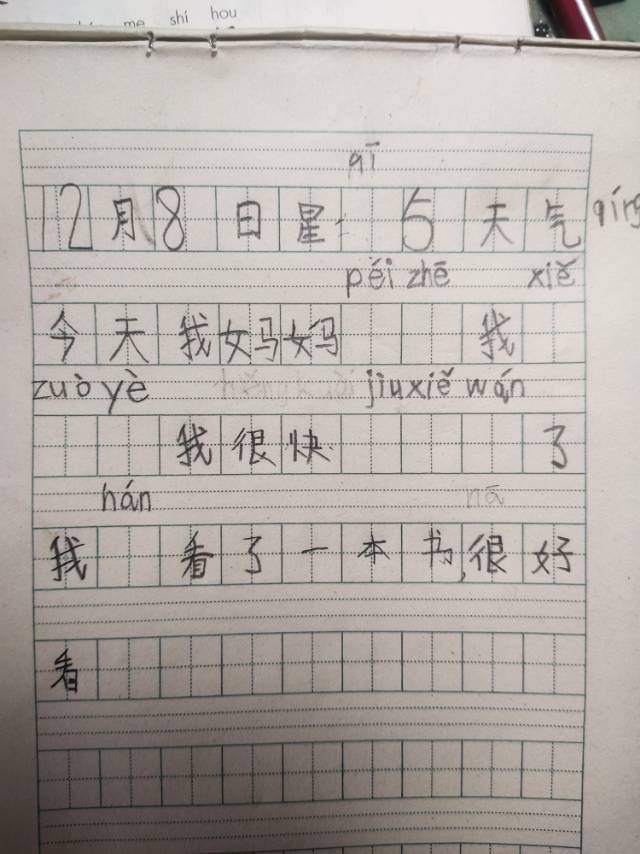 me shí hou
qī
12月8日星 5天气 qíng
péi zhē xiě
今天我妈妈 我
zuò yè jiu xiě wán
我很快 了
hán nā
我 看了一本书,很好
看